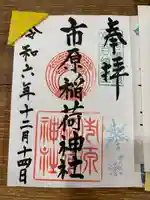 奉拝
市原稲荷神社
令和六年十二月十四日
市原
神社